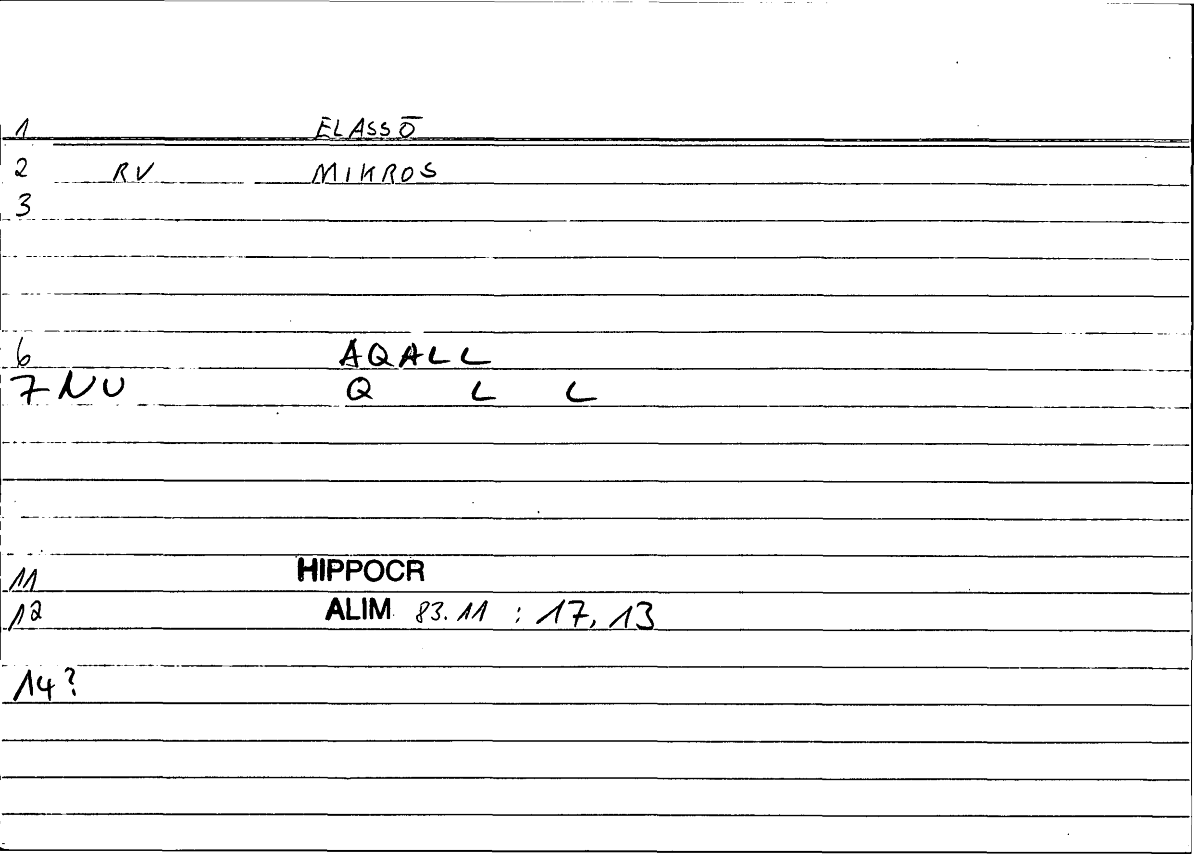 1 ELASSŌ
2 RV MIKROS
3
6 AQALL
7 NU Q L L
11 HIPPOCR
12 ALIM 83.11 : 17, 13
14?